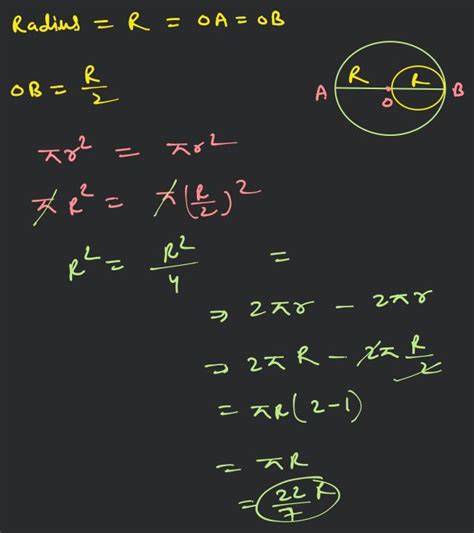 Radius = R = OA = OB
OB = R/2
A R R B
O
πr² = πr²
πR² = π(R/2)²
R² = R²/4 =
⇒ 2πr - 2πr
⇒ 2πR - 2π R/2
= πR(2-1)
= πR
= 22/7 R